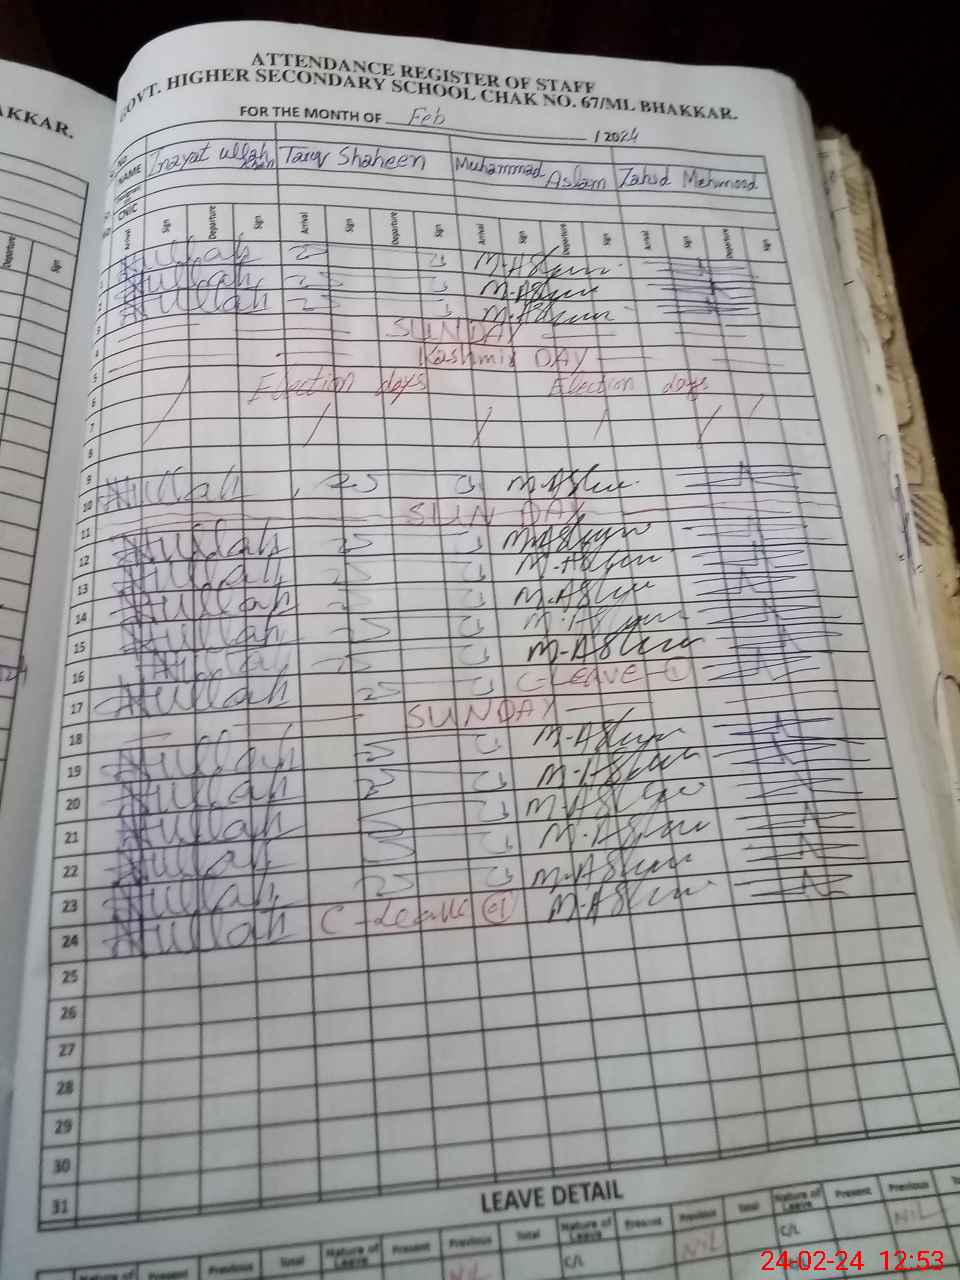 AKKAR.
ATTENDANCE REGISTER OF STAFF
GOVT. HIGHER SECONDARY SCHOOL CHAK NO. 67/ML BHAKKAR.
FOR THE MONTH OF Feb / 2024
NAME Inayat ullah Khan Tariq Shaheen Muhammad Aslam Zahid Mehmood
CNIC
Departure Sign Arrival Sign Departure Sign Arrival Sign Departure Sign Arrival Sign Departure Sign Arrival Sign Departure Sign
1 M.Aslam
2 M.Aslam
3 M.Aslam
4 SUNDAY
5 Kashmir DAY
6 Election days Election days
7
8
9
10 M.Aslam
11 SUNDAY
12 M.Aslam
13 M.Aslam
14 M.Aslam
15 M.Aslam
16 M.Aslam
17 C-Leave 1
18 SUNDAY
19 M.Aslam
20 M.Aslam
21 M.Aslam
22 M.Aslam
23 M.Aslam
24 C-Leave 01 M.Aslam
25
26
27
28
29
30
31
LEAVE DETAIL
Nature of Leave Present Previous Total Nature of Leave Present Previous Total Nature of Leave Present Previous Total Nature of Leave Present Previous
NIL C/L NIL C/L NIL
24-02-24 12:53